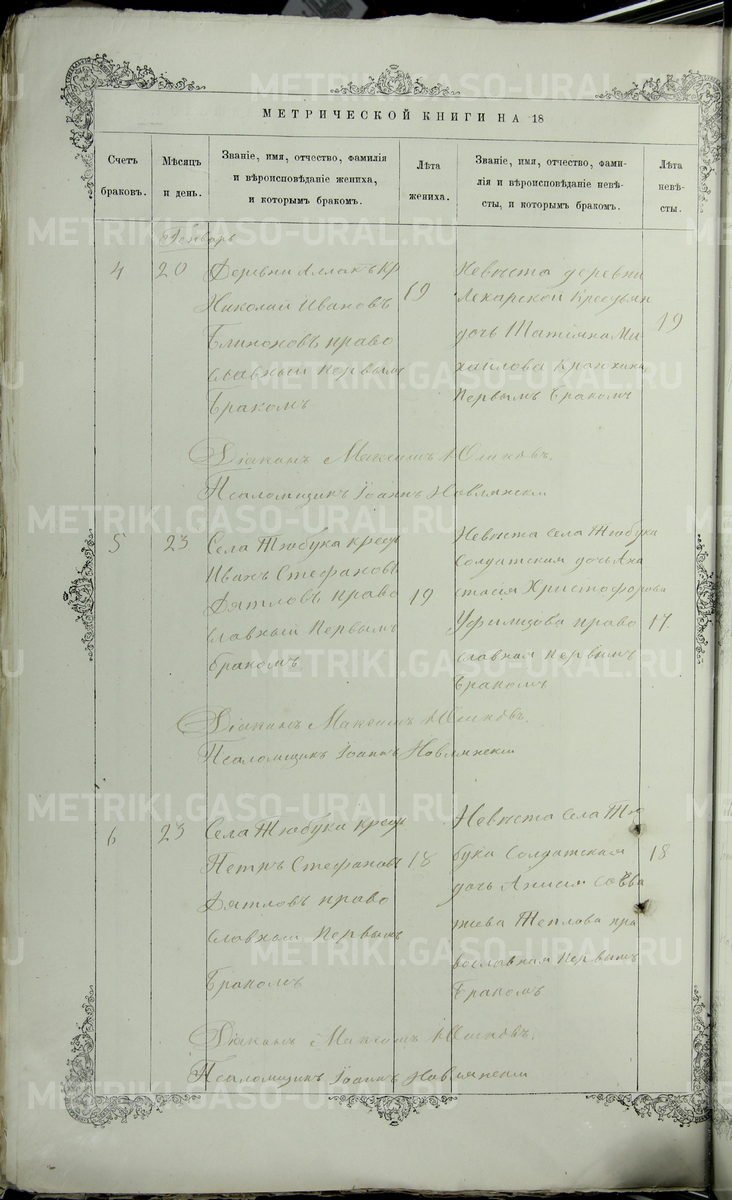 МЕТРИЧЕСКОЙ КНИГИ НА 18
Счетъ браковъ.
Мѣсяцъ и день.
Званіе, имя, отчество, фамилія
и вѣроисповѣданіе жениха,
и которымъ бракомъ.
Лѣта жениха.
Званіе, имя, отчество, фами-
лія и вѣроисповѣданіе невѣ-
сты, и которымъ бракомъ.
Лѣта невѣ-
сты.
Январь
4
20
Деревни Аллакъ Кр
Николай Ивановъ
Блиновъ право
славный первымъ
Бракомъ
19
Невѣста деревни
Пекарской Крестьян
дочь Татіяна Ми
хаилова
Первымъ Бракомъ
19
Діаконъ Максимъ
Псаломщикъ Іоаннъ Новлянскій
5
23
Села Тюбука крест
Иванъ Стефановъ
Дятловъ право
славный Первымъ
бракомъ
19
Невѣста села Тюбука
Солдатская дочь Ана
стасія Христофорова
Уфимцова право
славная первымъ
бракомъ
17
Діаконъ Максимъ
Псаломщикъ Іоаннъ Новлянскій
6
23
Села Тюбука крест
Петръ Стефановъ
Дятловъ право
славный Первымъ
Бракомъ
18
Невѣста села Тю
бука Солдатская
дочь Анисія Савва
тіева Теплова пра
вославная первымъ
Бракомъ
18
Діаконъ Максимъ
Псаломщикъ Іоаннъ Новлянскій
METRIKI.GASO-URAL.RU